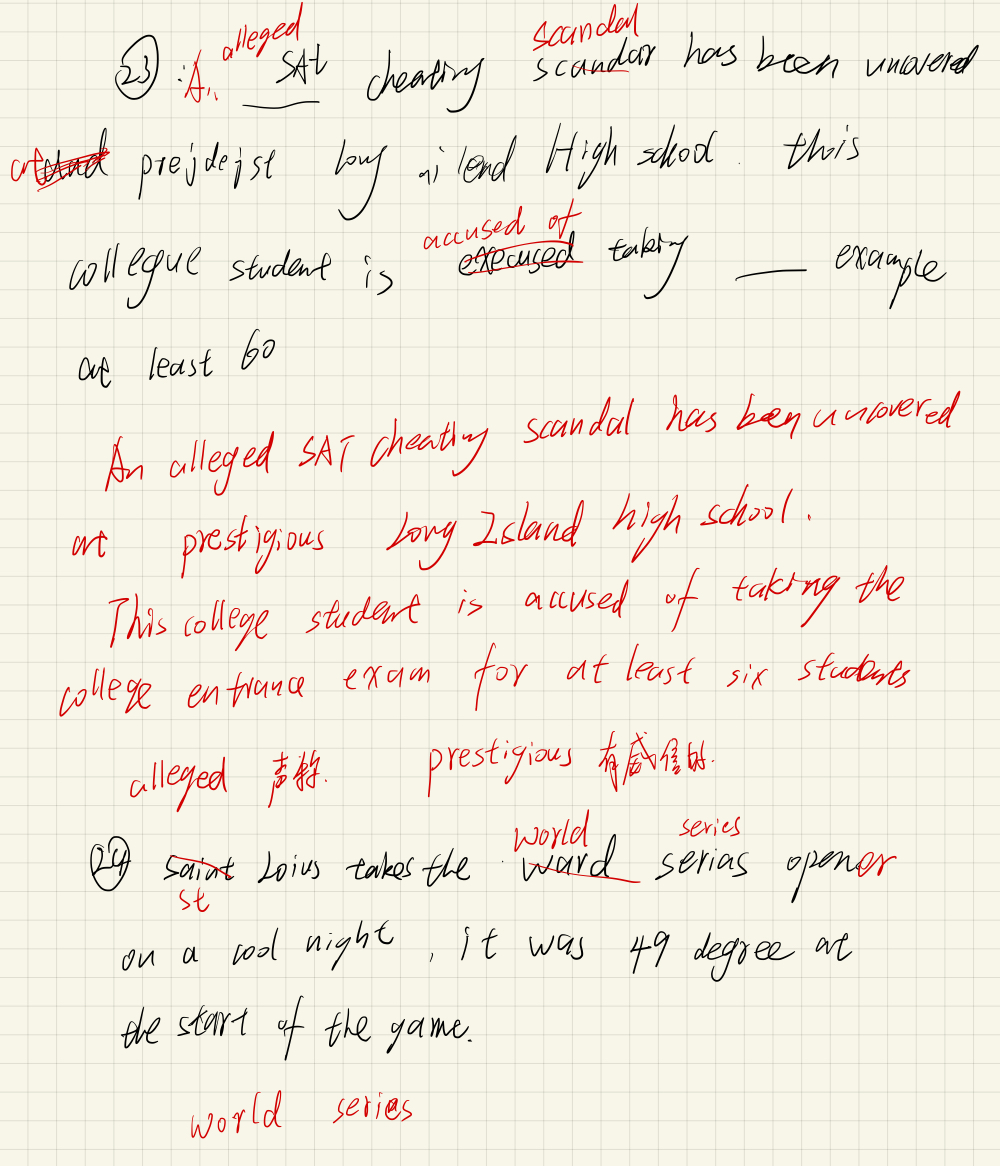 alleged scandal
㉓ An ___ SAT cheating scandar has been uncovered
at prejdejst Long ailend High school. this
accused of
collegue student is execused taking ___ example
at least 60
An alleged SAT cheating scandal has been uncovered
at prestigious Long Island high school.
This college student is accused of taking the
college entrance exam for at least six students
alleged 声称. prestigious 有威信的.
world series
㉔ saint Loius takes the ward serias opener
st
on a cool night, it was 49 degree at
the start of the game.
world series